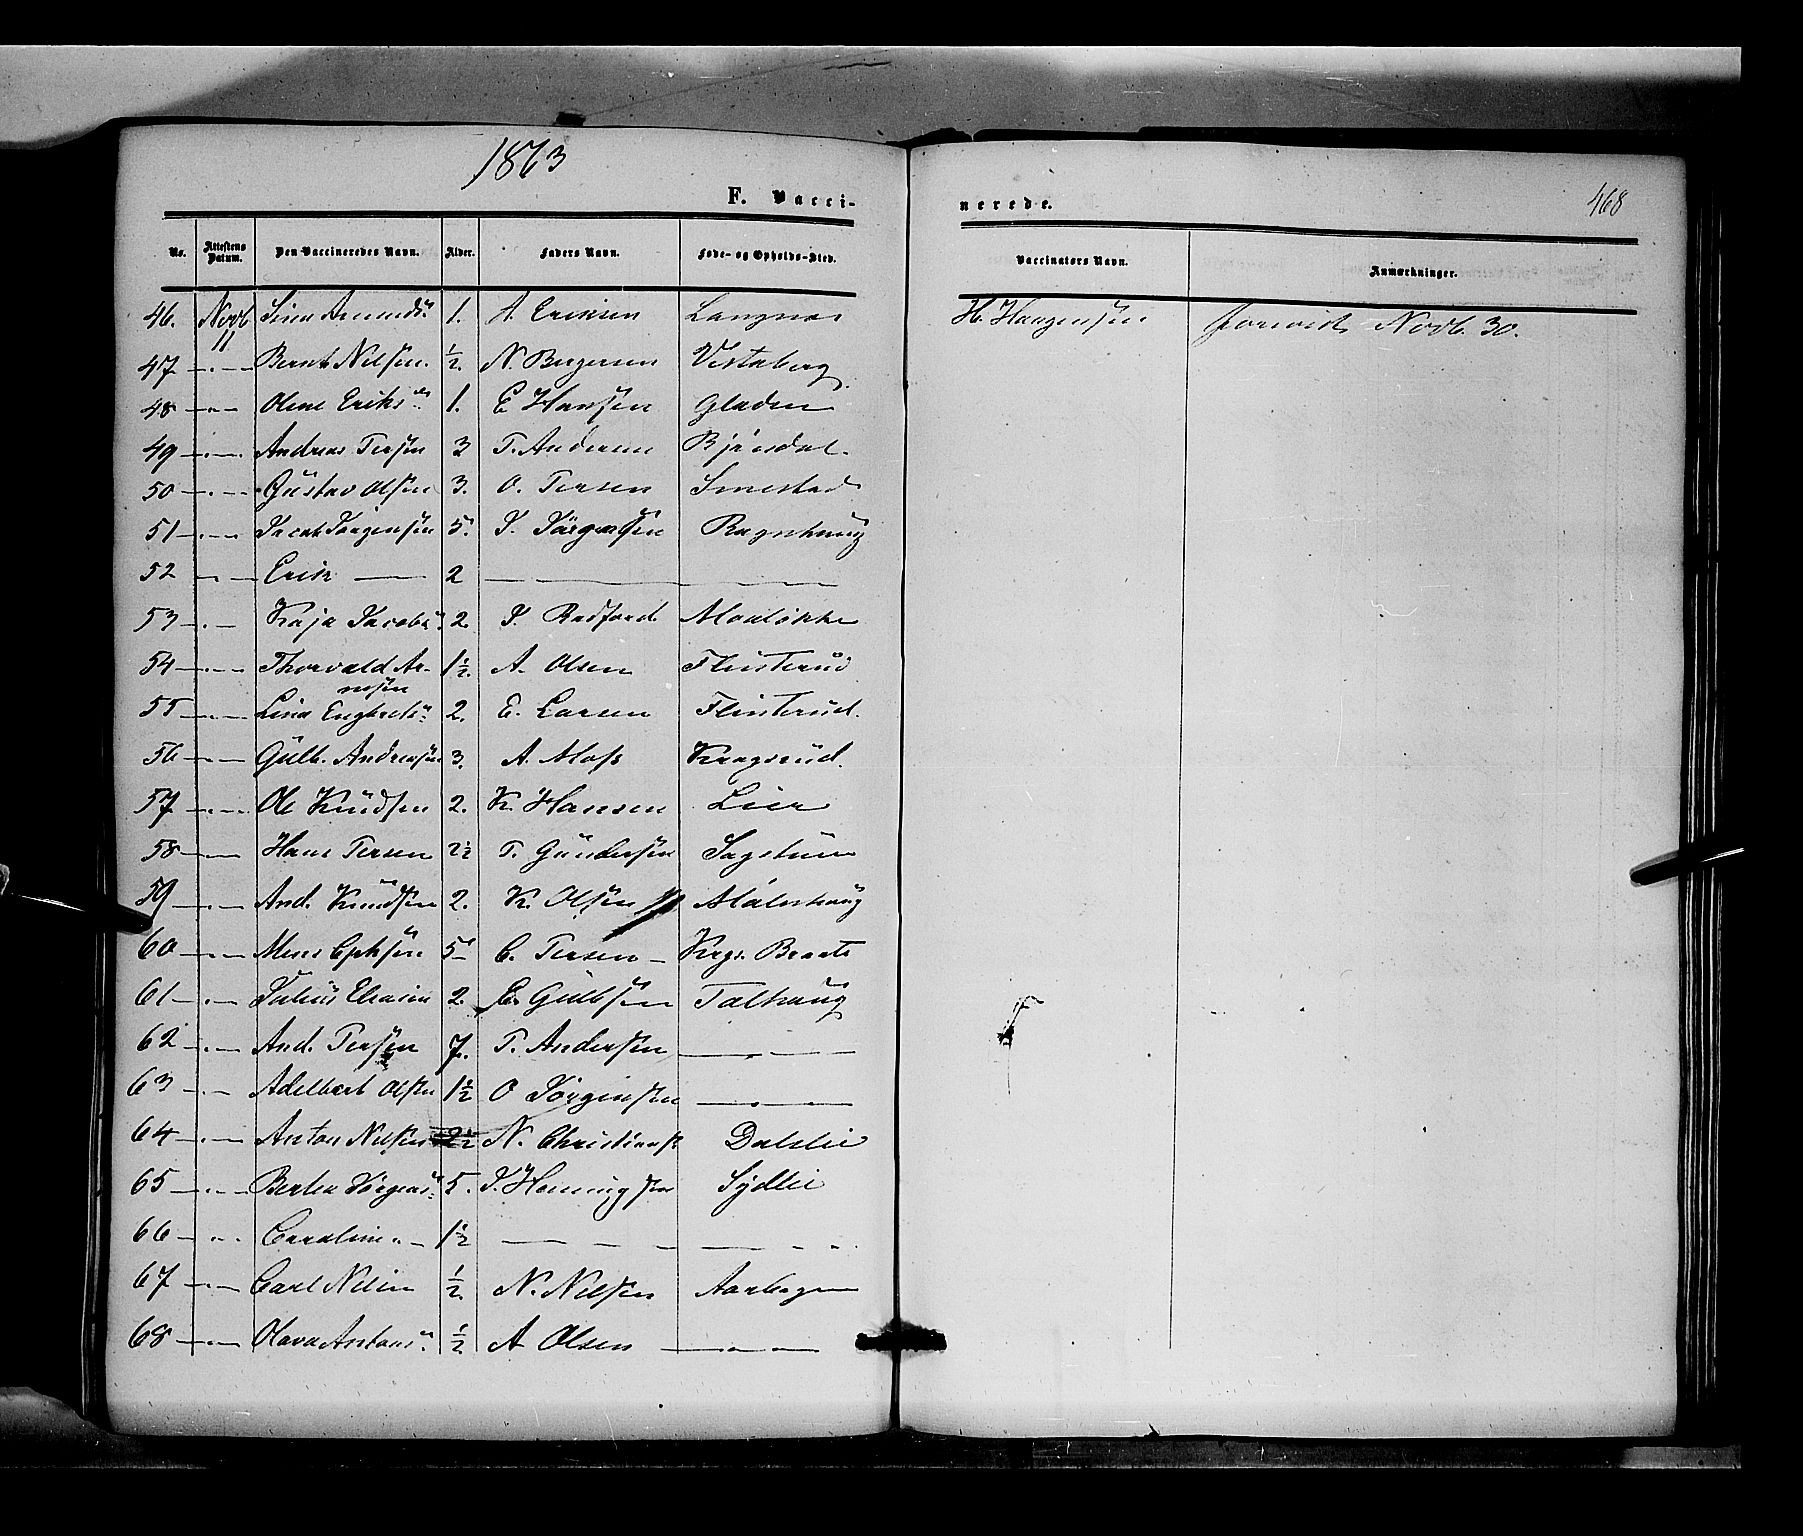 1863
F. Vacci-
nerede.
468
No. Attestens Datum. Den Vaccineredes Navn. Alder. Faders Navn. Føde- og Opholds-Sted. Vaccinators Navn. Anmærkninger.
46. Novb 11 1. A. Eriksen Langnæs H. Haugensen Novb. 30.
47 Bernt Nilsen. ½. N. Bergersen Vestaberg
48 Oline Eriks 1. E Hansen Gladen
49 Andreas Persen 3 P. Andersen Bjørndal.
50 Gustav Olsen 3. O. Persen Smestad
51 Jacob Jørgensen 5. J. Jørgensen Ragnhaug
52 Erik — 2 — — —
53 Kaja Jacobs 2. J. Radford Moeløkke
54 Thorvald Ar-
nesen 1½. A. Olsen Flinterud
55 Lina Engbrets 2. E. Larsen Flinterud.
56 Gulb. Andreasen 3. A. Moss Kragsrud.
57 Ole Knudsen 2. K. Hansen Lier
58 Hans Persen 2½ P. Gundersen Sagstuen
59 And. Knudsen 2. K. Olsen Malerhaug
60 5 C. Persen Krgs. Braate
61 Julius Eliasen 2. E. Gulbsen Talhaug
62 And. Persen 7. P. Andersen — . —
63 Adelbert Olsen 1½ O Jørgensen — . —
64 Anton Nilsen 2½ N. Christians Dahlie
65 Berthe Jørgens 5. J. Henningsen Sydlie
66 Caroline 〃 1½ — — — — — —
67 Carl Nilsen ½. N. Nilsen Aasbogen
68 Olava Antons ½. A Olsen — . —